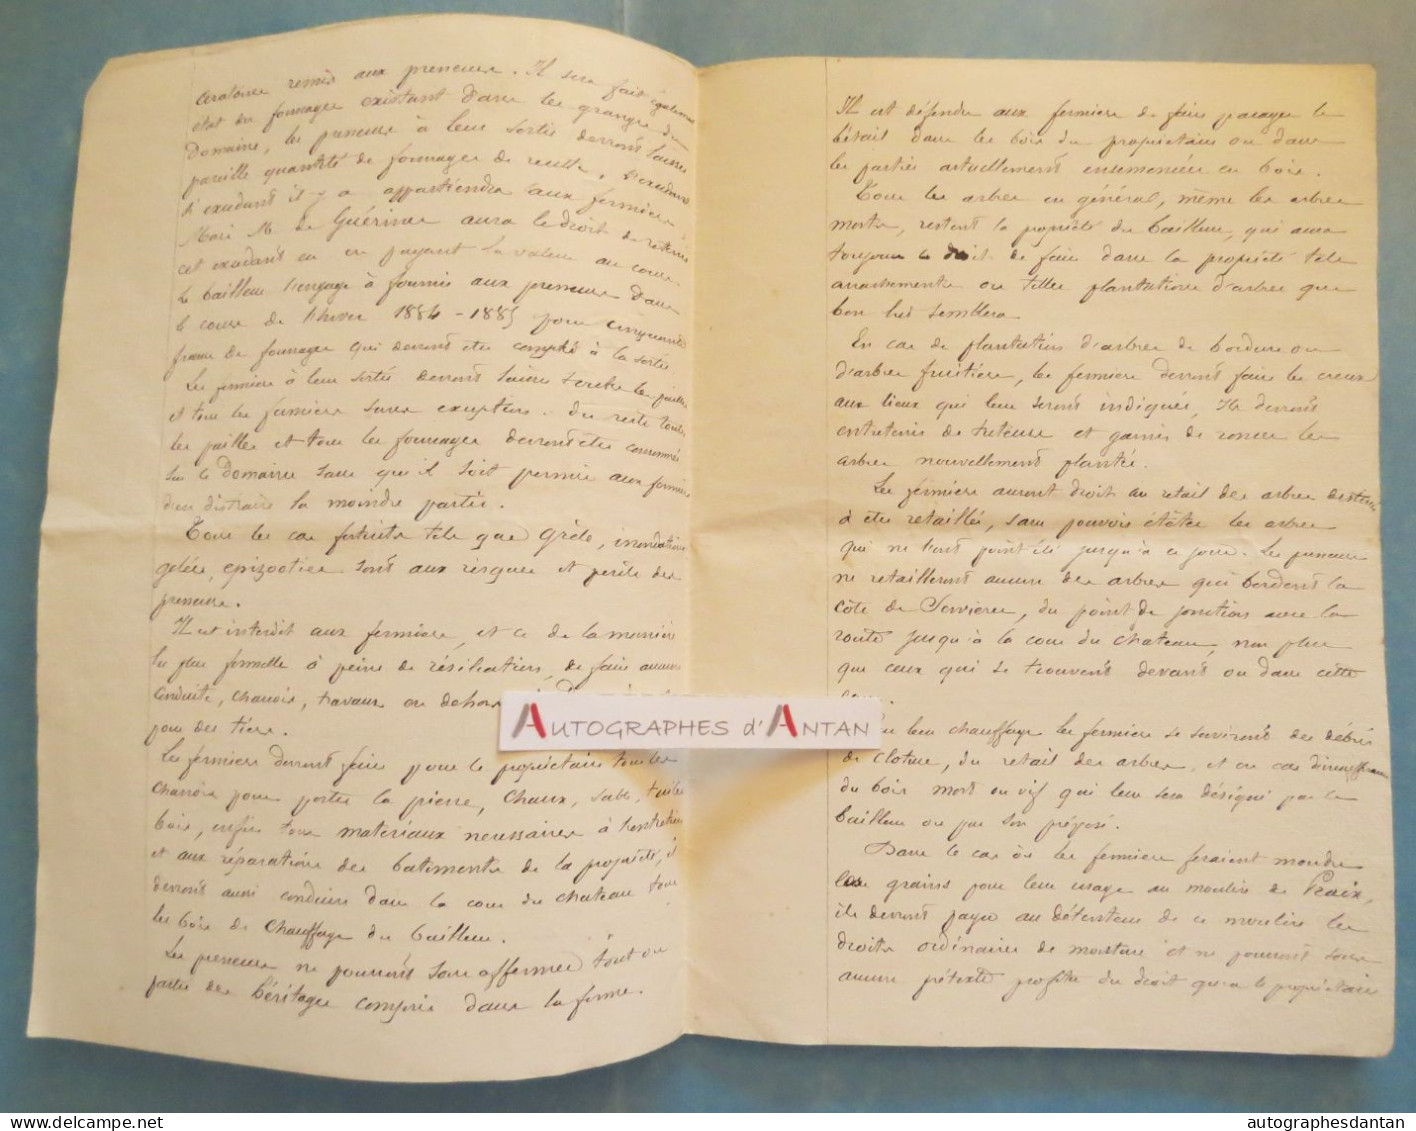 aratoires remis aux preneurs. Il sera fait également
état du fourrages existant dans les granges du
Domaine, les preneurs à leur sortie devront laisser
pareille quantité de fourrages de récolte, l'excédant
si excédant il y a appartiendra aux fermiers
Mais M. de Guérines aura le droit de retenir
cet excédant en en payant la valeur au cours.
Le bailleur s'engage à fournir aux preneurs dans
le cours de l'hiver 1884-1885 pour cinquante
francs de fourrages qui devront être comptés à la sortie.
Les fermiers à leur sortie devront laisser toutes les pailles
et tous les fumiers sans exception. Du reste toutes
les pailles et tous les fourrages devront être consommés
sur le Domaine sans qu'il soit permis aux fermiers
d'en distraire la moindre partie.
Tous les cas fortuits tels que grêle, inondation
gelée, épizooties sont aux risques et périls des
preneurs.
Il est interdit aux fermiers, et ce de la manière
la plus formelle à peine de résiliation, de faire aucune
conduite, charrois, travaux en dehors
pour des tiers.
Les fermiers devront faire pour le propriétaire tous les
charrois pour porter la pierre, chaux, sable, tuiles
bois, enfin tous matériaux nécessaires à l'entretien
et aux réparations des batiments de la propriété, il
devront aussi conduire dans la cour du chateau tous
les bois de chauffage du bailleur.
Les preneurs ne pourront sous affermer tout ou
partie des héritages compris dans la ferme.
Il est défendu aux fermiers de faire pacager le
bétail dans les bois du propriétaire ou dans
les parties actuellement ensemencées en bois.
Tous les arbres en général, même les arbres
morts, restent la propriété du bailleur, qui aura
toujours le droit de faire dans la propriété tels
arrachements ou telles plantations d'arbres que
bon lui semblera.
En cas de plantation d'arbres de bordure ou
d'arbres fruitiers, les fermiers devront faire les creux
aux lieux qui leur seront indiqués, Ils devront
entretenir de tuteurs et garnis de ronces les
arbres nouvellement plantés.
Les fermiers auront droit au retail des arbres destinés
à être retaillés, sans pouvoir étêter les arbres
qui ne l'ont point été jusqu'à ce jour. Les preneurs
ne retailleront aucun des arbres qui bordent la
côte de Servières, du point de jonction avec la
route jusqu'à la cour du chateau, non plus
que ceux qui se trouvent devant ou dans cette
leur chauffage les fermiers se serviront des débris
de cloture, du retail des arbres, et en cas d'insuffisance
du bois mort ou vif qui leur sera désigné par le
bailleur ou par son préposé.
Dans le cas où les fermiers feraient moudre
les grains pour leur usage au moulin de Reaix,
ils devront payer au détenteur de ce moulin les
droits ordinaires de mouture et ne pourront sous
aucun prétexte profiter du droit qu'a le propriétaire
AUTOGRAPHES d'ANTAN
delcampe.net
autographesdantan